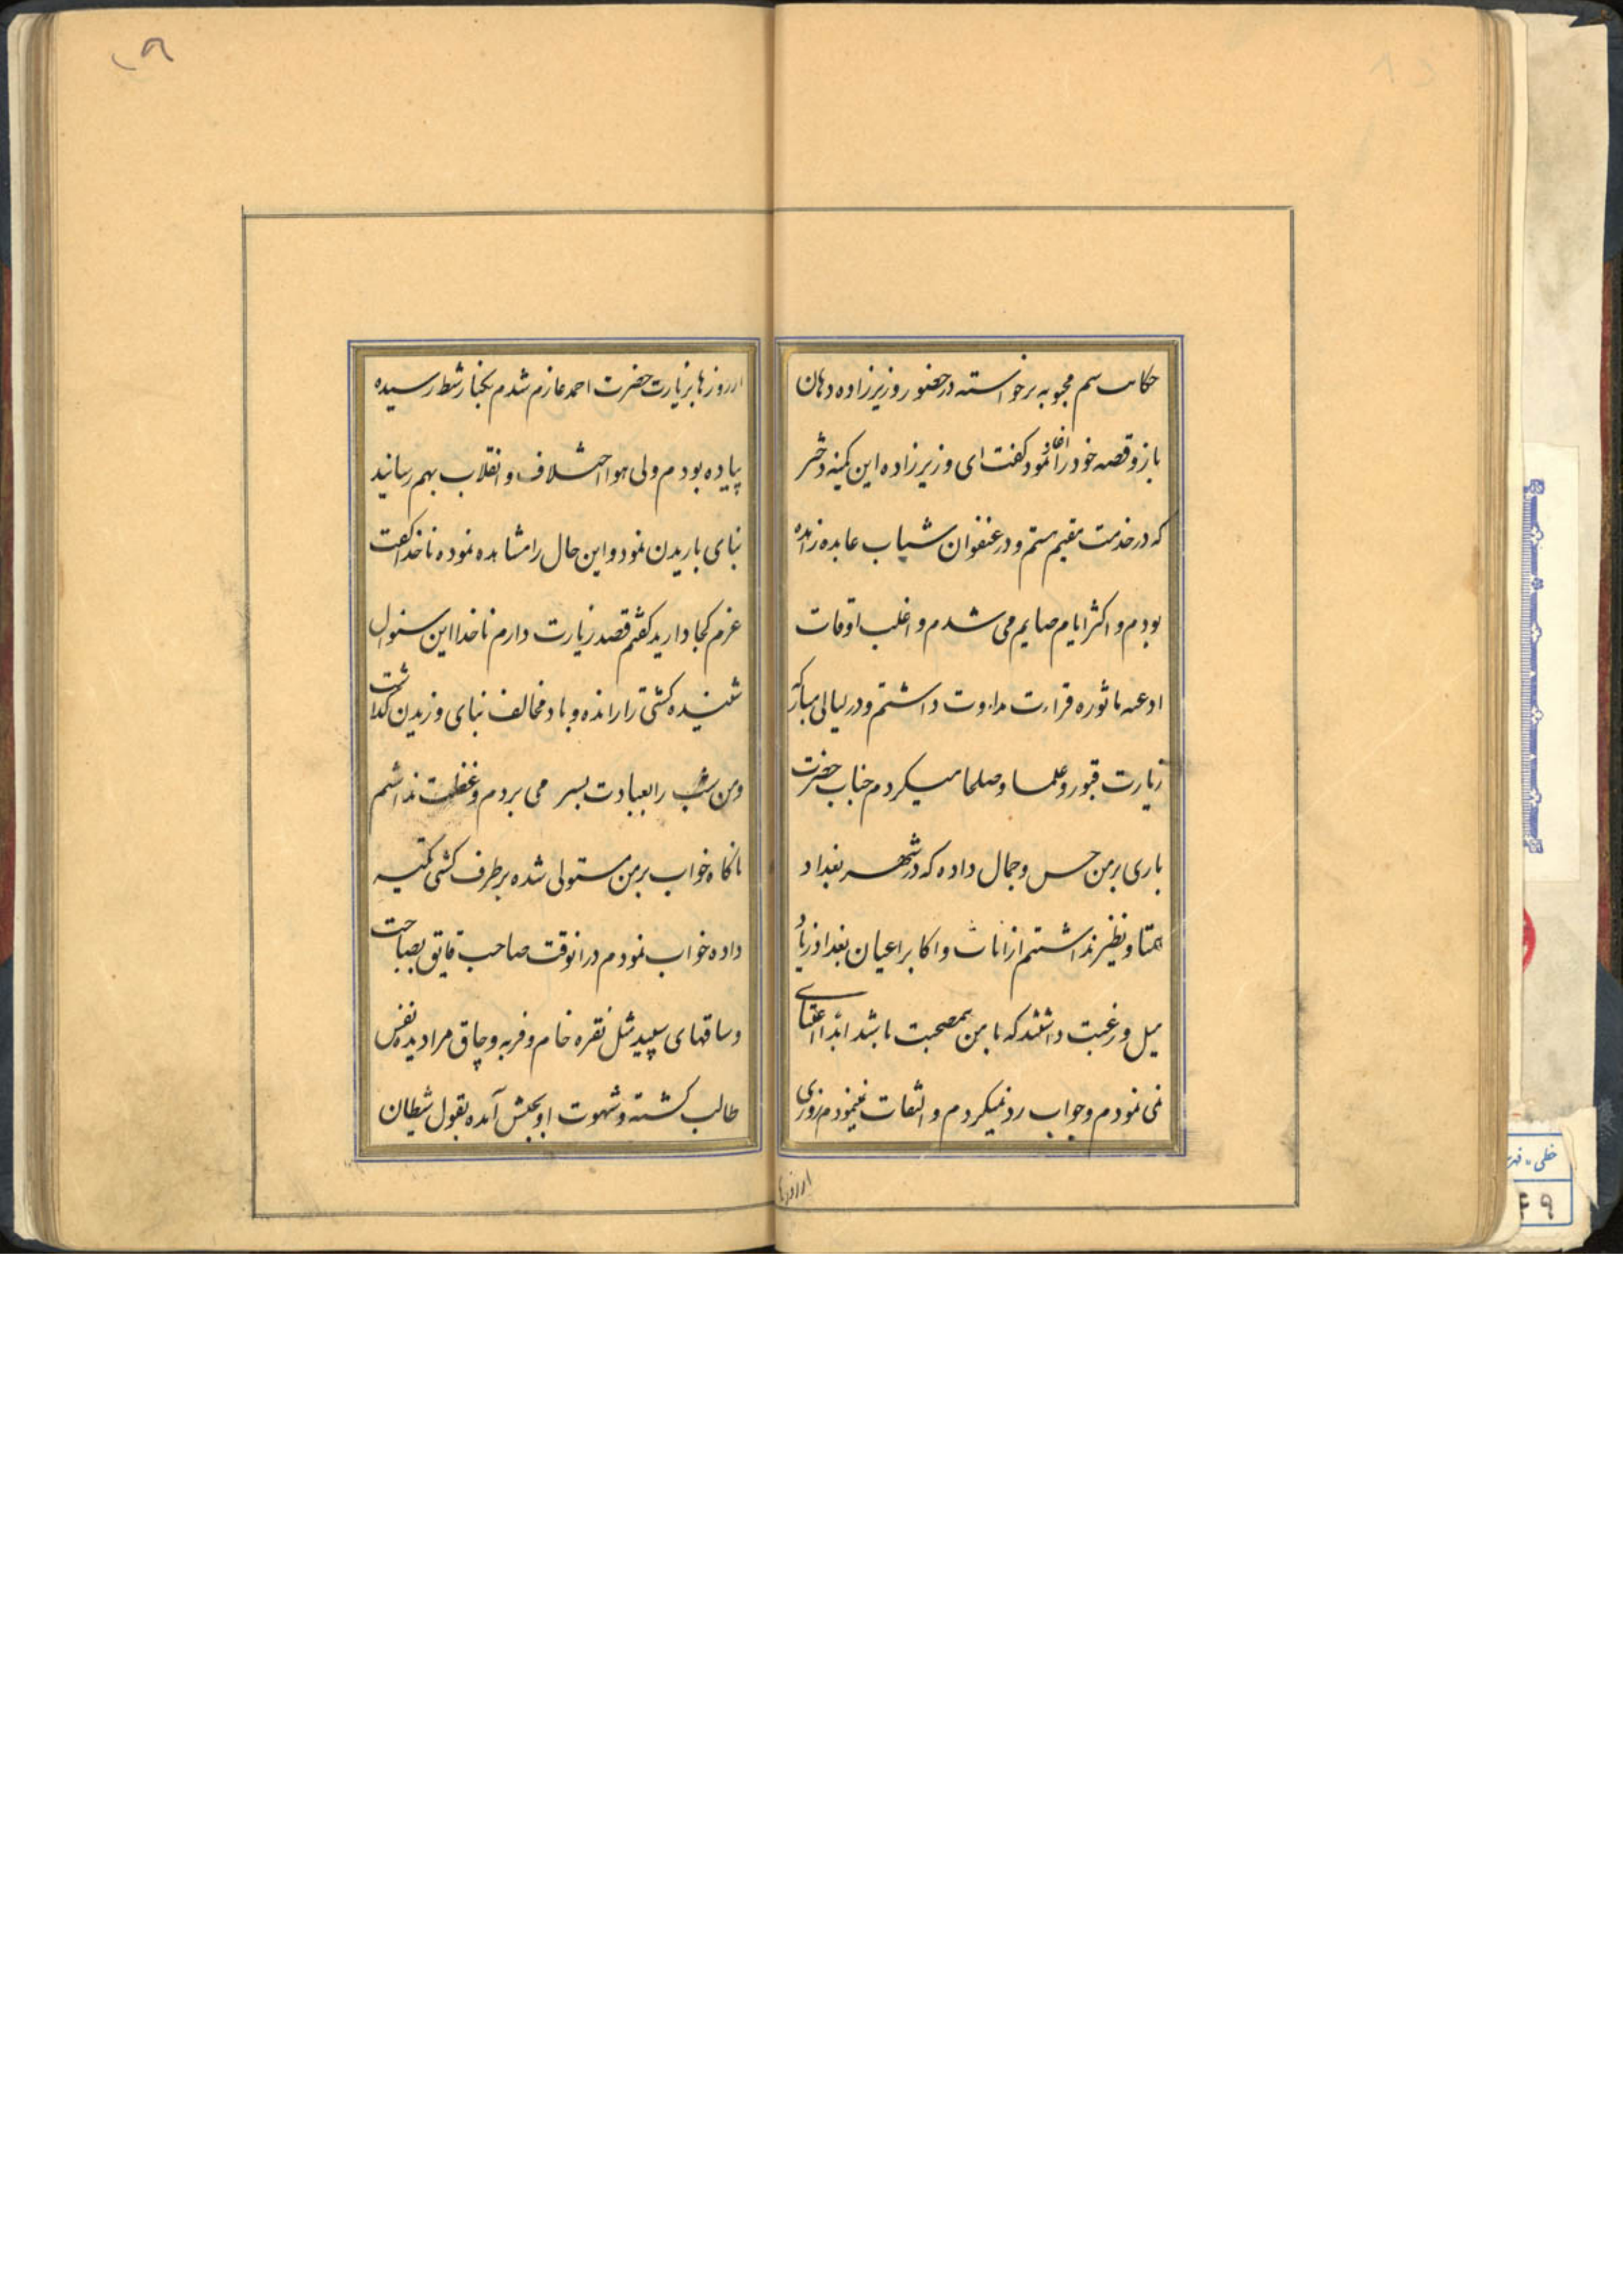 حکایت سیم محبوبه برخواسته در حضور وزیرزاده دهان
باز و قصه خود را آغاز نمود گفت ای وزیرزاده این کمینه دختر
که در خدمت مقیم هستم و در عنفوان شباب عابده زاهده
بودم و اکثر ایام صایم می شدم و اغلب اوقات
ادعیه ماثوره قراءت مداومت داشتم و در لیالی مبارکه
زیارت قبور و علما و صلحا میکردم جناب حضرت
باری بر من حسن و جمال داده که در شهر بغداد
همتا و نظیر نداشتم از اناث و اکابر اعیان بغداد زیاد
میل و رغبت داشتند که با من بمصحبت باشد ابدا اعتنای
نمی نمودم و جواب رد نمیکردم و التفات نمینمودم روزی
از روزها
از روزها بزیارت حضرت احمد عازم شدم بکنار شط رسیده
پیاده بودم ولی هوا اختلاف و انقلاب بهم رسانید
بنای باریدن نمود و این حال را مشاهده نموده ناخدا گفت
عزم کجا دارید گفتم قصد زیارت دارم ناخدا این سئوال
شنیده کشتی را رانده و باد مخالف بنای وزیدن گذاشت
و من شب را بعبادت بسر می بردم و غفلت نداشتم
ناگاه خواب بر من مستولی شده بر طرف کشتی تکیه
داده خواب نمودم در انوقت صاحب قایق بصباحت
و ساقهای سپید مثل نقره خام و فربه و چاق مرا دیده نفس
طالب گشته و شهوت او بجنبش آمده بقول شیطان
خطی
۴۹